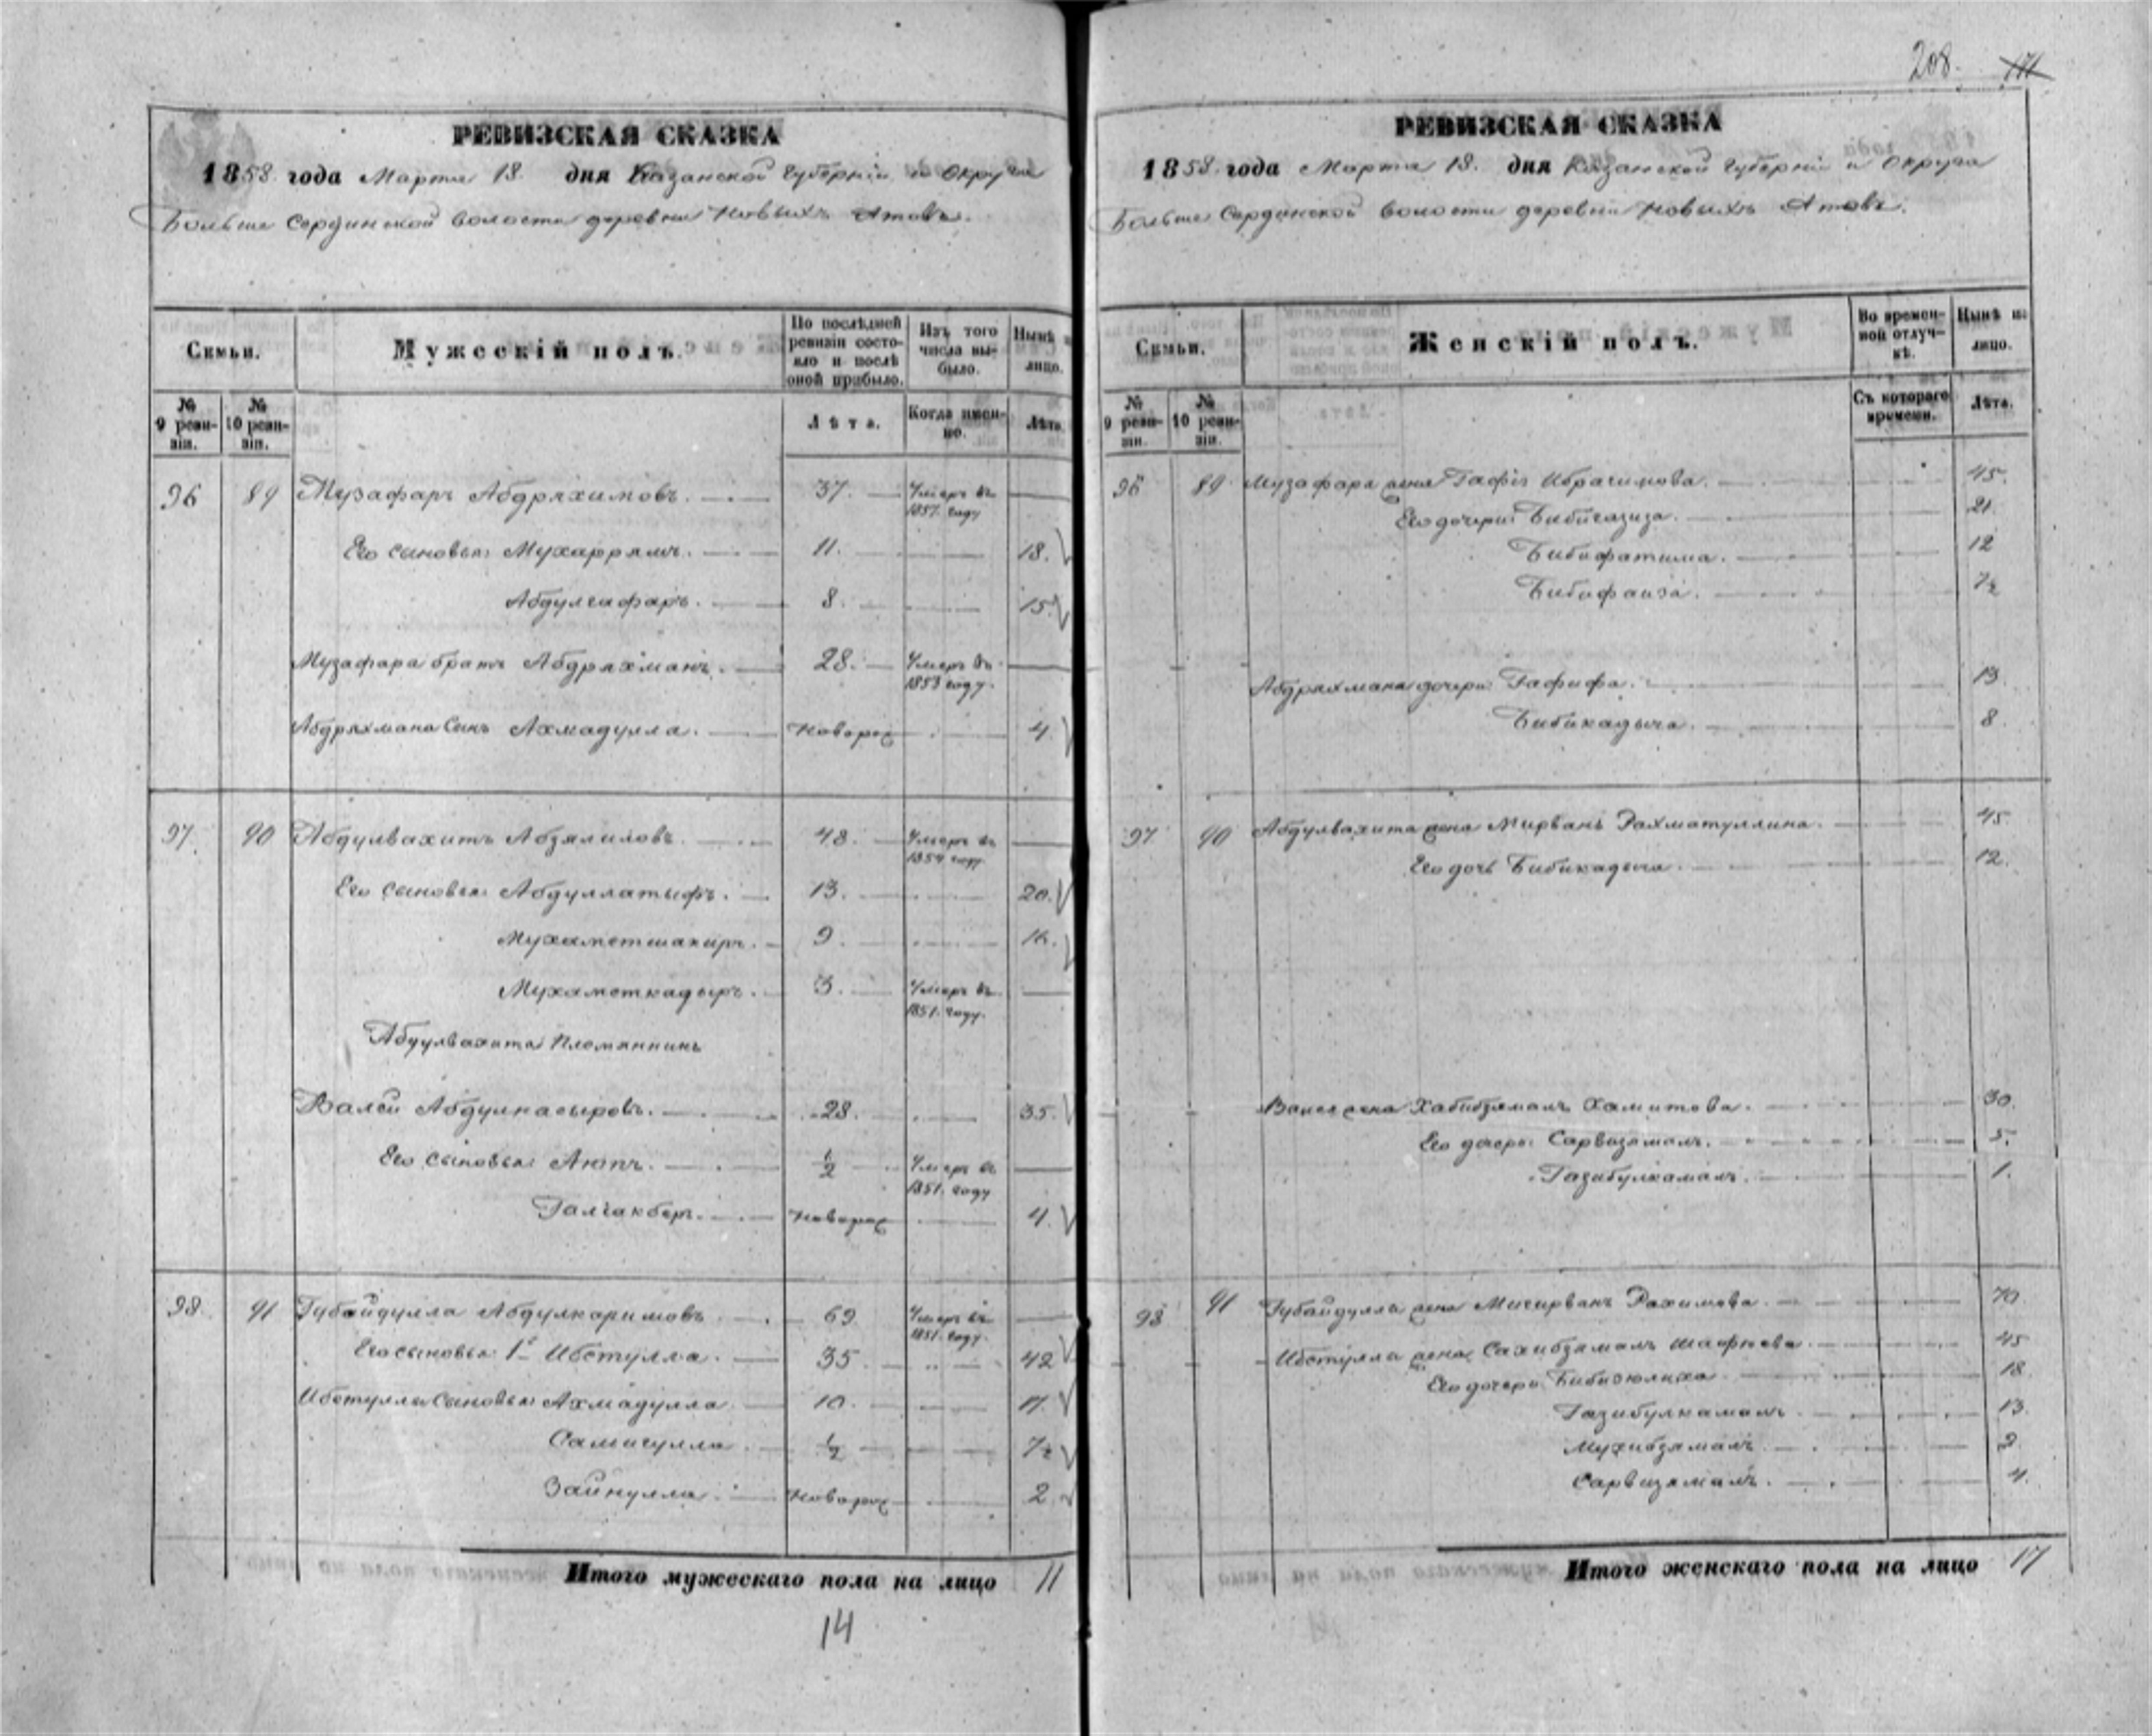 РЕВИЗСКАЯ СКАЗКА
1858 года Марта 18. дня Казанской Губерніи и Округа
Больше Сердинской волости деревни Новыхъ Атовъ.
Семьи.
Мужескій полъ.
По послѣдней ревизіи состояло и послѣ оной прибыло.
Изъ того числа выбыло.
Нынѣ на лицо.
№ 9 ревизіи.
№ 10 ревизіи.
Лѣта.
Когда именно.
Лѣта
96 89 Музафаръ Абдряхимовъ. 37. Умеръ въ 1857. году
Его сыновья: Мухаррямъ. 11. 18.
Абдулгафаръ. 8. 15.
Музафара братъ Абдряхманъ. 28. Умеръ въ 1853 году.
Абдряхмана Сынъ Ахмадулла. Новорож 4.
97. 90 Абдулвахитъ Абзялиловъ. 48. Умеръ въ 1854 году
Его сыновья: Абдуллатыфъ. 13. 20.
Мухаметшакиръ. 9. 16.
Мухаметкадыръ. 3. Умеръ въ 1851. году.
Абдулвахита Племянникъ
Валей Абдулнасыровъ. 28. 35.
Его сыновья: Аюпъ. 1/2 Умеръ въ 1851. году
Галіакберъ. Новорож 4.
98. 91 Губайдулла Абдулкаримовъ 69 Умеръ въ 1851. году.
Его сыновья: 1й Ибетулла. 35 42
Ибетуллы Сыновья: Ахмадулла 10. 17.
Самигулла 1/2 7½
Зайнулла Новорож 2
Итого мужескаго пола на лицо 11
14
208. 171
РЕВИЗСКАЯ СКАЗКА
1858 года Марта 18. дня Казанской Губерніи и Округа
Больше Сердинской волости деревни Новыхъ Атовъ.
Семьи.
Женскій полъ.
Во временной отлучкѣ.
Нынѣ на лицо.
№ 9 ревизіи.
№ 10 ревизіи.
Съ котораго времени.
Лѣта.
96 89 Музафара жена Гафія Ибрагимова. 45.
Его дочери: Бибигазиза. 21
Бибифатима. 12
Бибифаиза. 7½
Абдряхмана дочери: Гафифа. 13
Бибихадыча. 8.
97 90 Абдулвахита жена Мирвань Рахматуллина. 45.
Его дочь Бибихадыча. 12.
Валея жена Хабибзямалъ Хамитова. 30.
Его дочери: Сарвизямалъ. 5.
Газибулкамалъ. 1.
98 91 Губайдуллы жена Мигирванъ Рахимова. 70
Ибетуллы жена Сахибзямалъ Шафеева 45
Его дочери: Бибизюлиха 18.
Газибулкамалъ. 13.
Мухибзямалъ. 9.
Сарвизямалъ. 4.
Итого женскаго пола на лицо 17